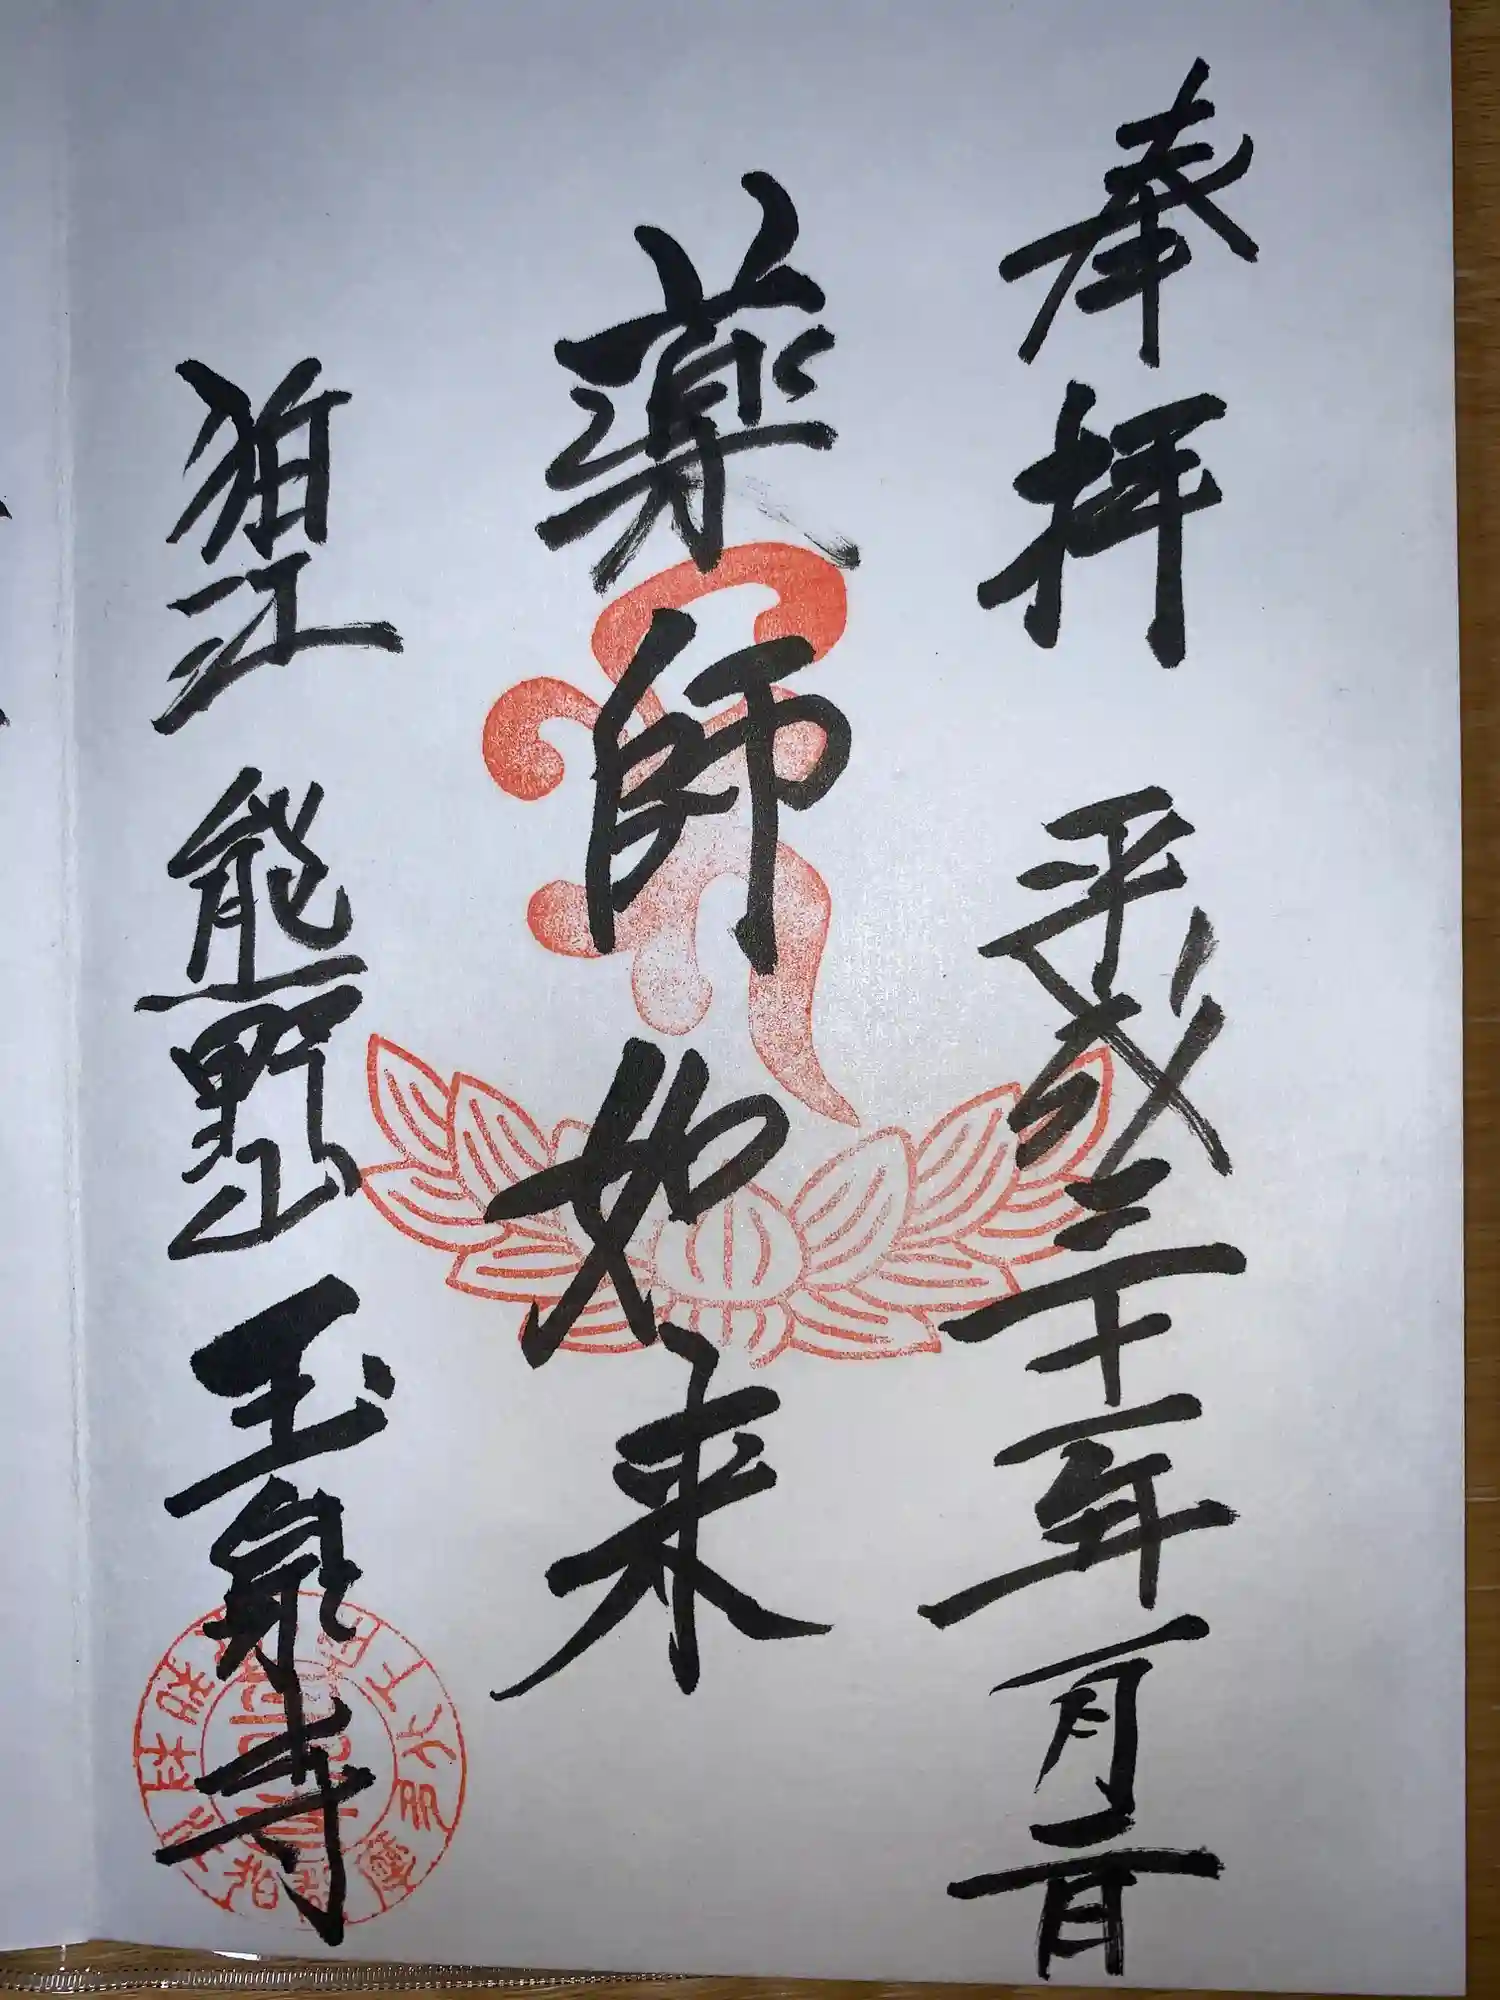 奉拝 平成三十年一月二日
薬師如来
狛江 熊野山 玉泉寺